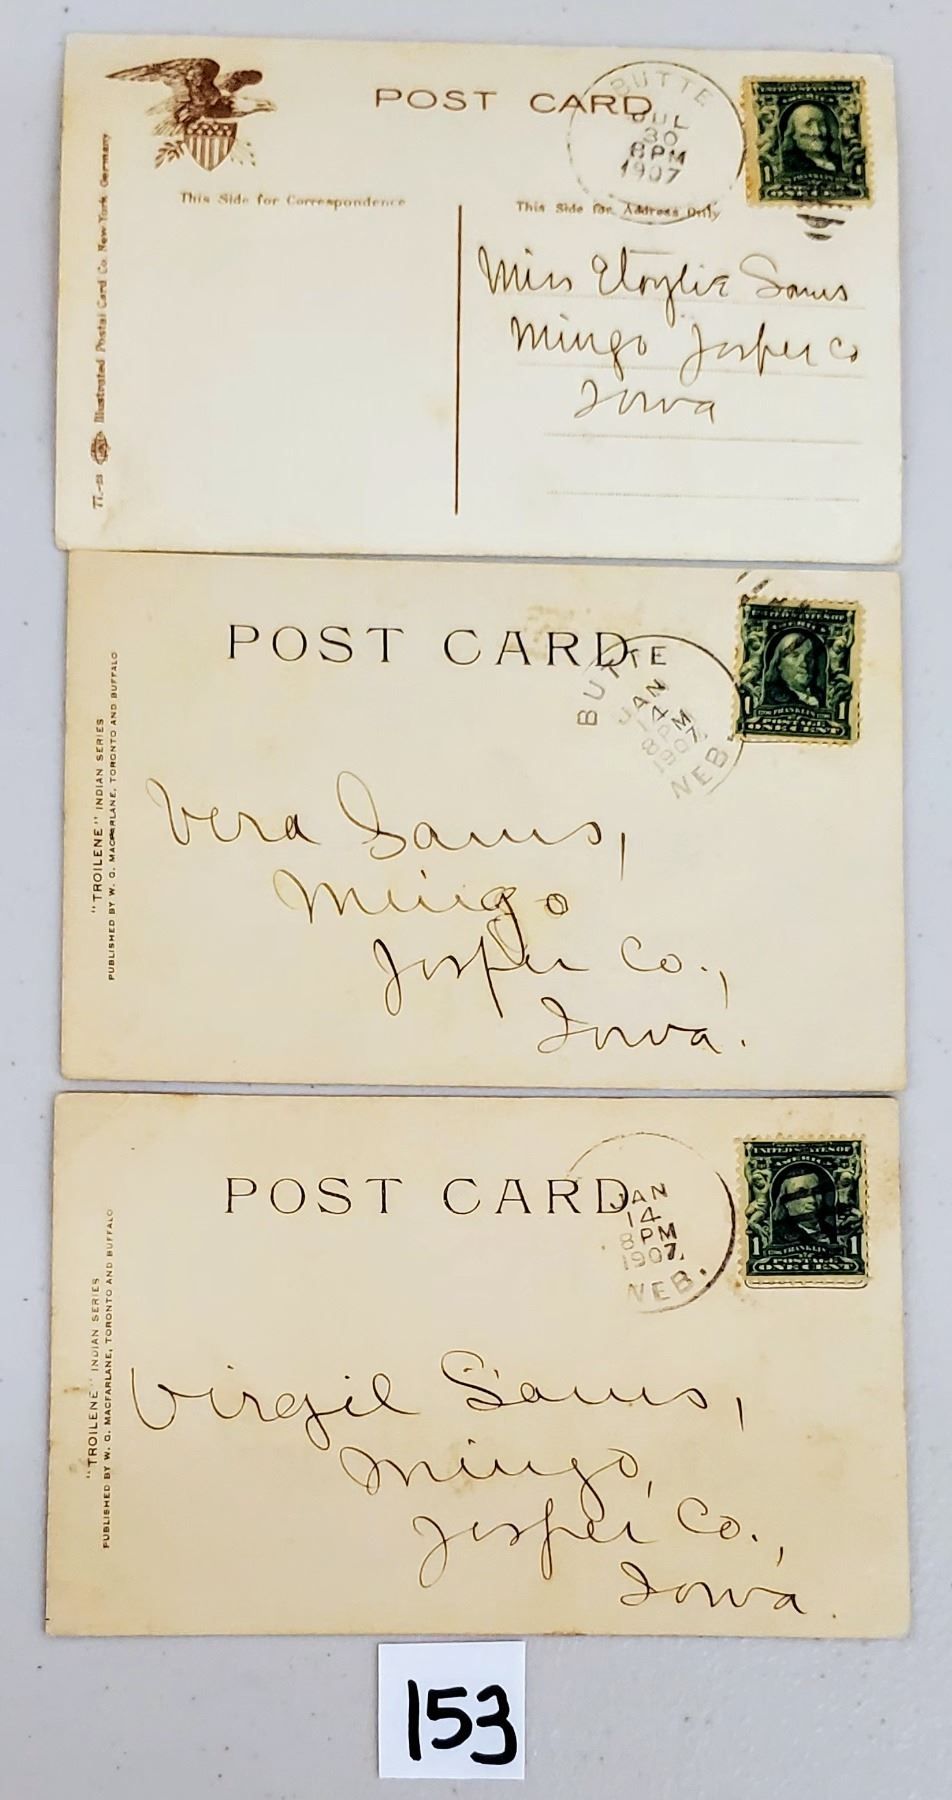 POST CARD
BUTTE
JUL
30
8 PM
1907
UNITED STATES OF
AMERICA
1 1
FRANKLIN
ONE CENT
This Side for Correspondence
This Side for Address Only
77.-23 Illustrated Postal Card Co. New York Germany
Miss Sams
Mingo Jasper Co
Iowa
POST CARD
BUTTE
JAN
14
8 PM
1907
NEB.
UNITED STATES OF
AMERICA
1 1
FRANKLIN
POSTAGE
ONE CENT
"TROILENE" INDIAN SERIES
PUBLISHED BY W. G. MACFARLANE, TORONTO AND BUFFALO
Vera Sams,
Mingo
Jasper Co.,
Iowa.
POST CARD
JAN
14
8 PM
1907
NEB.
UNITED STATES OF
AMERICA
1 1
FRANKLIN
POSTAGE
ONE CENT
"TROILENE" INDIAN SERIES
PUBLISHED BY W. G. MACFARLANE, TORONTO AND BUFFALO
Virgil Sams,
Mingo,
Jasper Co.,
Iowa.
153